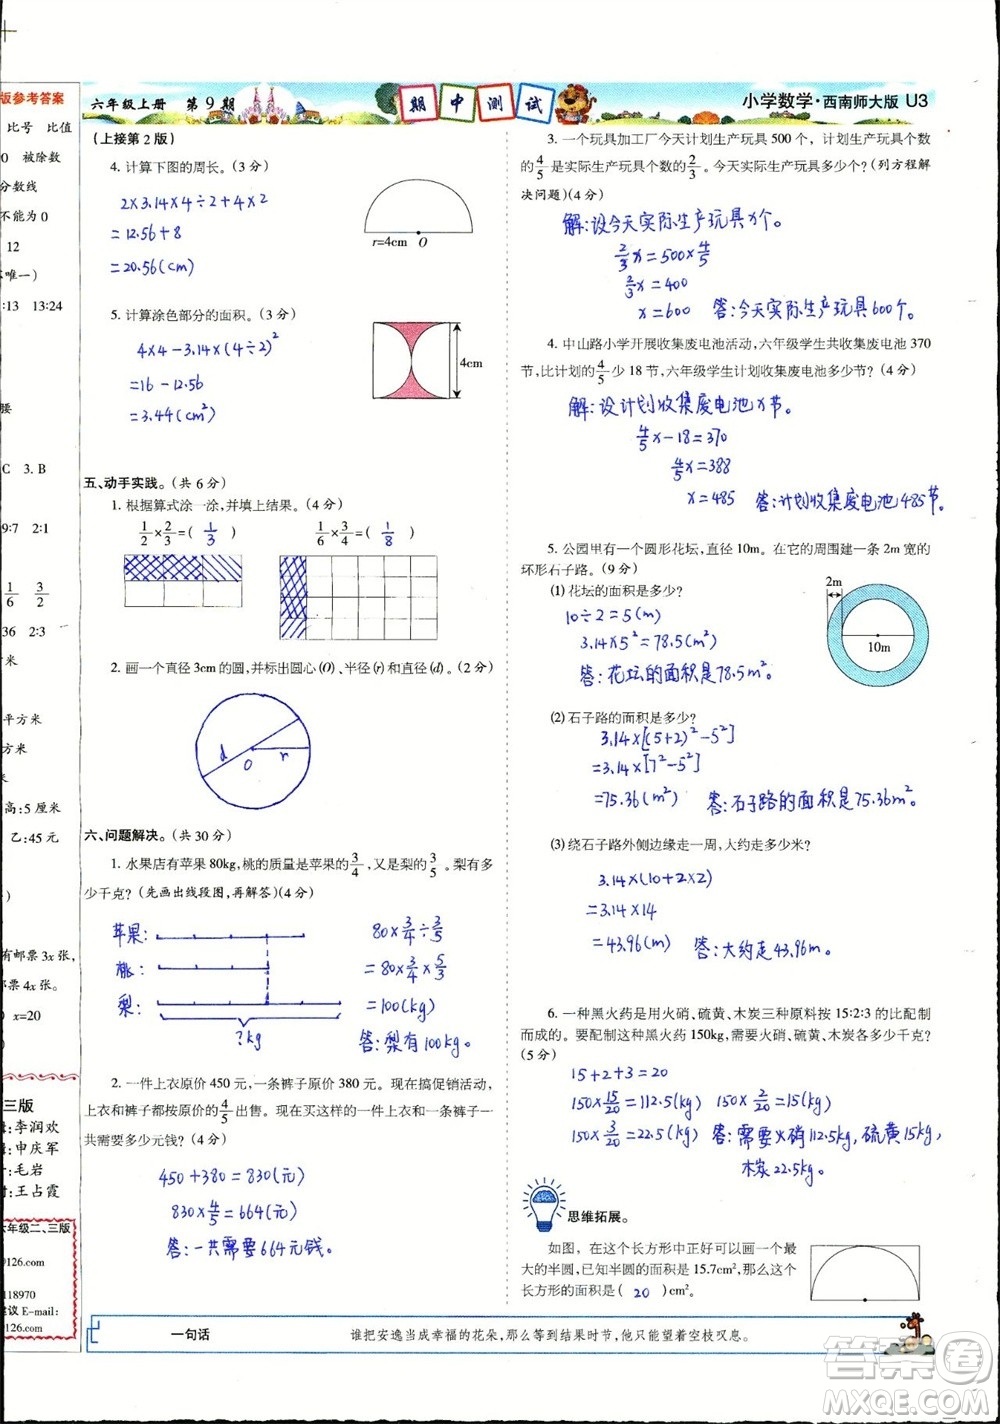 版参考答案
比号 比值
0 被除数
分数线
不能为 0
12
唯一)
:13 13:24
腰
C 3. B
9:7 2:1
1/6 3/2
36 2:3
平方米
高:5 厘米
乙:45 元
有邮票 3x 张,
4x 张。
x=20
三版
李润欢
申庆军
毛岩
王占霞
六年级二、三版
@126.com
118970
建议 E-mail:
@126.com
六年级上册 第 9 期 期中测试 小学数学·西南师大版 U3
(上接第 2 版)
4. 计算下图的周长。(3 分)
2×3.14×4÷2+4×2
=12.56+8
=20.56(cm)
r=4cm O
5. 计算涂色部分的面积。(3 分)
4×4-3.14×(4÷2)²
=16-12.56
=3.44(cm²)
4cm
五、动手实践。(共 6 分)
1. 根据算式涂一涂,并填上结果。(4 分)
1/2×2/3=( 1/3 ) 1/6×3/4=( 1/8 )
2. 画一个直径 3cm 的圆,并标出圆心(O)、半径(r)和直径(d)。(2 分)
d O r
六、问题解决。(共 30 分)
1. 水果店有苹果 80kg,桃的质量是苹果的3/4,又是梨的3/5。梨有多
少千克?(先画出线段图,再解答)(4 分)
苹果:
桃:
梨:
?kg
80×3/4÷3/5
=80×3/4×5/3
=100(kg)
答:梨有100kg。
2. 一件上衣原价 450 元,一条裤子原价 380 元。现在搞促销活动,
上衣和裤子都按原价的4/5出售。现在买这样的一件上衣和一条裤子一
共需要多少元钱?(4 分)
450+380=830(元)
830×4/5=664(元)
答:一共需要664元钱。
3. 一个玩具加工厂今天计划生产玩具 500 个，计划生产玩具个数
的4/5是实际生产玩具个数的2/3。今天实际生产玩具多少个?(列方程解
决问题)(4 分)
解:设今天实际生产玩具x个。
2/3x=500×4/5
2/3x=400
x=600 答:今天实际生产玩具600个。
4. 中山路小学开展收集废电池活动,六年级学生共收集废电池 370
节,比计划的4/5少 18 节,六年级学生计划收集废电池多少节?(4 分)
解:设计划收集废电池x节。
4/5x-18=370
4/5x=388
x=485 答:计划收集废电池485节。
5. 公园里有一个圆形花坛,直径 10m。在它的周围建一条 2m 宽的
环形石子路。(9 分)
(1) 花坛的面积是多少?
10÷2=5(m)
3.14×5²=78.5(m²)
答:花坛的面积是78.5m²。
2m
10m
(2) 石子路的面积是多少?
3.14×[(5+2)²-5²]
=3.14×[7²-5²]
=75.36(m²) 答:石子路的面积是75.36m²
(3) 绕石子路外侧边缘走一周,大约走多少米?
3.14×(10+2×2)
=3.14×14
=43.96(m) 答:大约走43.96m。
6. 一种黑火药是用火硝、硫黄、木炭三种原料按 15:2:3 的比配制
而成的。要配制这种黑火药 150kg,需要火硝、硫黄、木炭各多少千克?
(5 分)
15+2+3=20
150×15/20=112.5(kg) 150×2/20=15(kg)
150×3/20=22.5(kg) 答:需要火硝112.5kg,硫黄15kg,
木炭22.5kg。
思维拓展。
如图，在这个长方形中正好可以画一个最
大的半圆,已知半圆的面积是 15.7cm²,那么这个
长方形的面积是( 20 )cm²。
一句话 谁把安逸当成幸福的花朵,那么等到结果时节,他只能望着空枝叹息。
答案圈
MXQE.COM